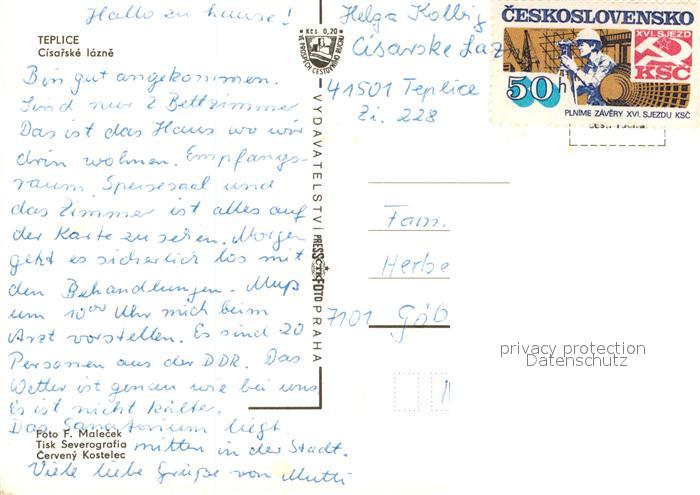 Hallo zu hause!
TEPLICE
Císařské lázně
Bin gut angekommen.
Sind nur 2 Bettzimmer
Das ist das Haus wo wir
drin wohnen. Empfangs-
raum, Speisesaal und
das Zimmer ist alles auf
der Karte zu sehen. Morgen
geht es sicherlich los mit
den Behandlungen. Muß
um 10⁰⁰ Uhr mich beim
Arzt vorstellen. Es sind 20
Personen aus der DDR. Das
Wetter ist genau wie bei uns
Es ist nicht kälter.
Das Sanatorium liegt
mitten in der Stadt.
Viele liebe Grüße von Mutti
Foto F. Maleček
Tisk Severografia
Červený Kostelec
Kčs 0,20
VE PROSPĚCH CESTOVNÍHO RUCHU
VYDAVATELSTVÍ PRESSFOTO PRAHA
ČTK
Helga Kolbig
Cisarske Laz
41501 Teplice
Zi. 228
ČESKOSLOVENSKO
XVI. SJEZD
KSČ
50 h
PLNÍME ZÁVĚRY XVI. SJEZDU KSČ
Fam.
Herbe
7101 Göb
privacy protection
Datenschutz